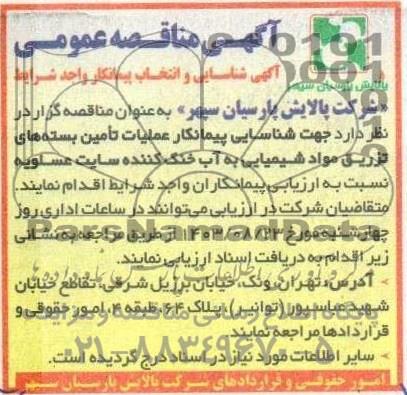 آگهی مناقصه عمومی
آگهی شناسایی و انتخاب پیمانکار واحد شرایط
پالایش پارسیان سپهر
«شرکت پالایش پارسیان سپهر» به عنوان مناقصه گزار در
نظر دارد جهت شناسایی پیمانکار عملیات تأمین بسته‌های
تزریق مواد شیمیایی به آب خنک کننده سایت عسلویه
نسبت به ارزیابی پیمانکاران واجد شرایط اقدام نمایند.
متقاضیان شرکت در ارزیابی می‌توانند در ساعات اداری روز
چهارشنبه مورخ ۱۴۰۳/۰۸/۲۳ از طریق مراجعه به نشانی
زیر اقدام به دریافت اسناد ارزیابی نمایند.
- آدرس: تهران، ونک، خیابان برزیل شرقی، تقاطع خیابان
شهید عباسپور (توانیر) پلاک ۶۴ طبقه ۴، امور حقوقی و
قراردادها مراجعه نمایند.
- سایر اطلاعات مورد نیاز در اسناد درج گردیده است.
امور حقوقی و قراردادهای شرکت پالایش پارسیان سپهر
ParsNamadData
۰۲۱-۸۸۳۴۹۶۷۰-۵